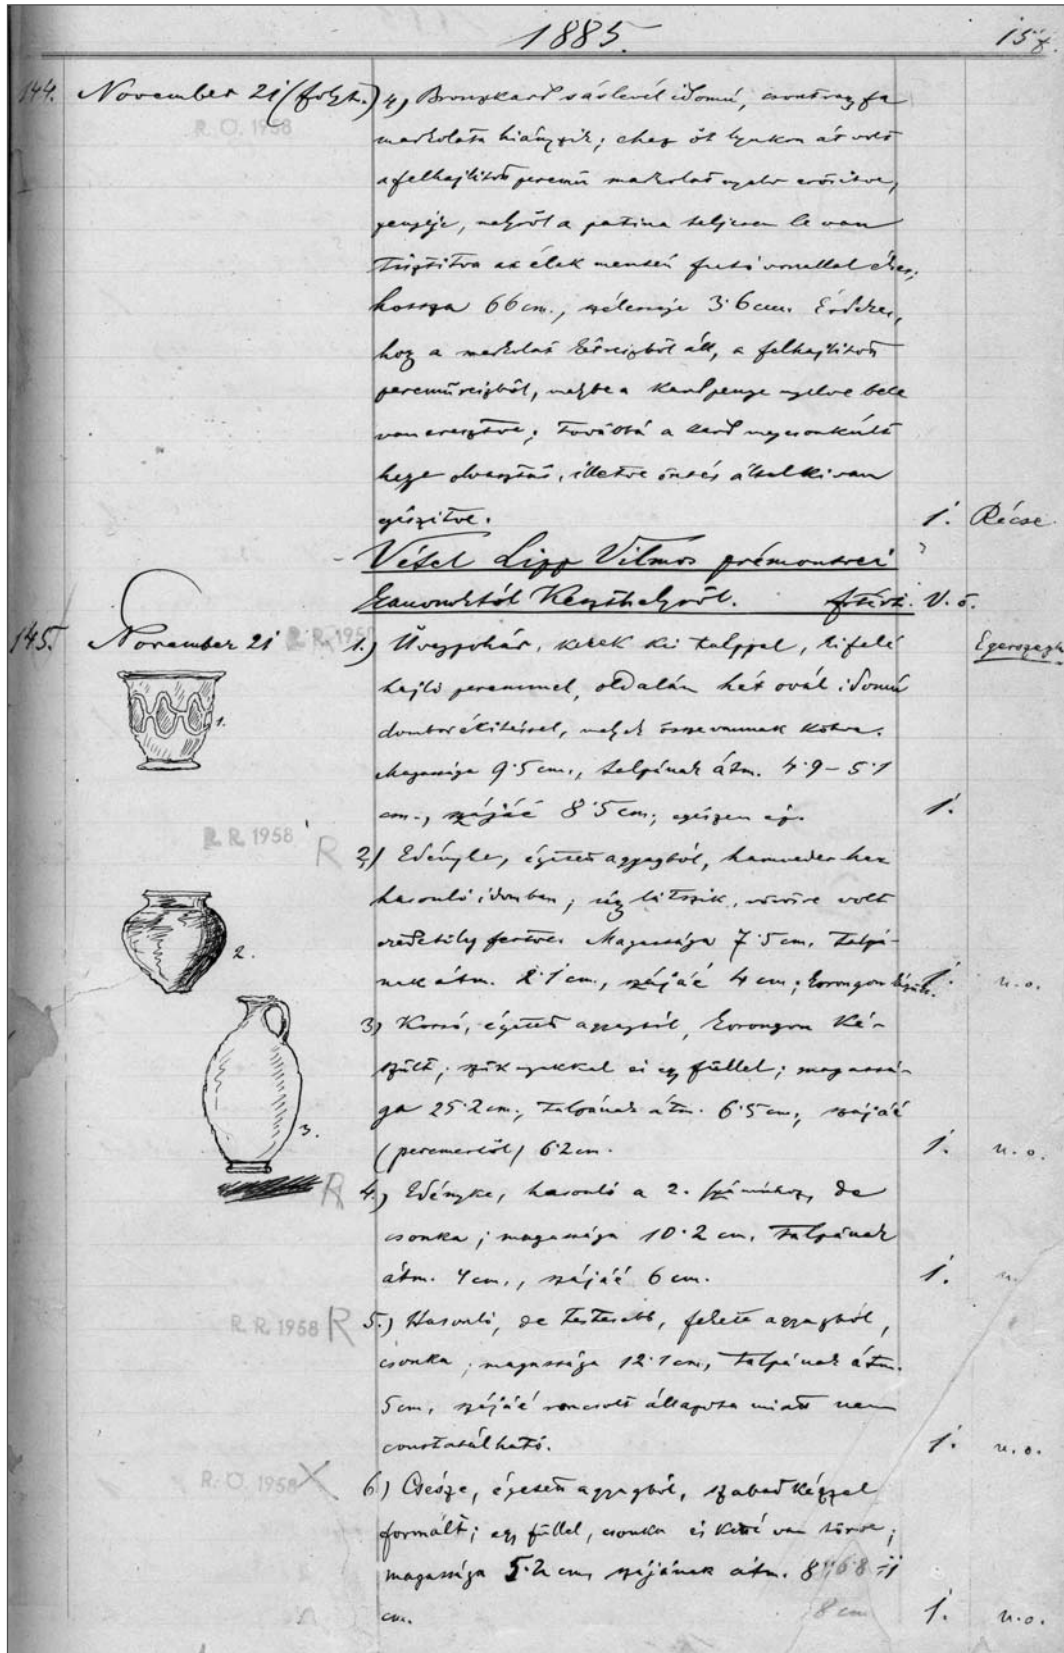 1885.
144. November 21 (folyt.) 4) Bronzkard sáslevél idomú, csont vagy fa
R. Ö. 1958
markolata hiányzik; ehez öt lyukon át volt
a felhajlított peremű markolat nyelv erősítve,
pengéje, melyről a patina teljesen le van
tisztítva az élek mentén futó vonallal ékes;
hossza 66 cm., szélessége 3·6 cm. Érdekes,
hogy a markolat két részből áll, a felhajlított
peremű részből, melybe a kard penge nyelve bele
van eresztve; továbbá a kard megcsonkúlt
hegye olvasztás, illetve öntés által ki van
egészitve. 1. Récse
Vétel Lipp Vilmos prémontrei
kanonoktól Keszthelyről. V. ö.
145. November 21 R. R. 195 1.) Üvegpohár, kerek kis talppal, kifelé Egerszeg
hajló peremmel, oldalán hét ovál idomú
domború díszítéssel, melyek össze vannak kötve.
1.
Magassága 9·5 cm., talpának átm. 4·9 – 5·1
cm., szájáé 8·5 cm; egészen ép. 1.
R. R. 1958 R 2) Edényke, égetett agyagból, hamvederhez
hasonló idomban; úgy látszik, vörösre volt
eredetileg festve. Magassága 7·5 cm. talpá-
2.
nak átm. 2·1 cm., szájáé 4 cm; korongon készült. 1. u.o.
3) Korsó, égetett agyagból, korongon ké-
szült; szűk nyakkal és egy füllel; magassá-
ga 25·2 cm., talpának átm. 6·5 cm., szájáé
3.
(peremestől) 6·2 cm. 1. u.o.
R 4.) Edényke, hasonló a 2. számúhoz, de
csonka; magassága 10·2 cm. talpának
átm. 4 cm., szájáé 6 cm. 1. u.
R. R. 1958 R 5.) Hasonló, de testesebb, fekete agyagból,
csonka; magassága 12·1 cm, talpának átm.
5 cm, szájáé roncsolt állapota miatt nem
constatálható. 1. u.o.
R. Ö. 1958 X 6) Csésze, égetett agyagból, szabad kézzel
formált; egy füllel, csonka és ketté van törve;
magassága 5·2 cm, szájának átm. 8
cm. 8 cm 1. u.o.